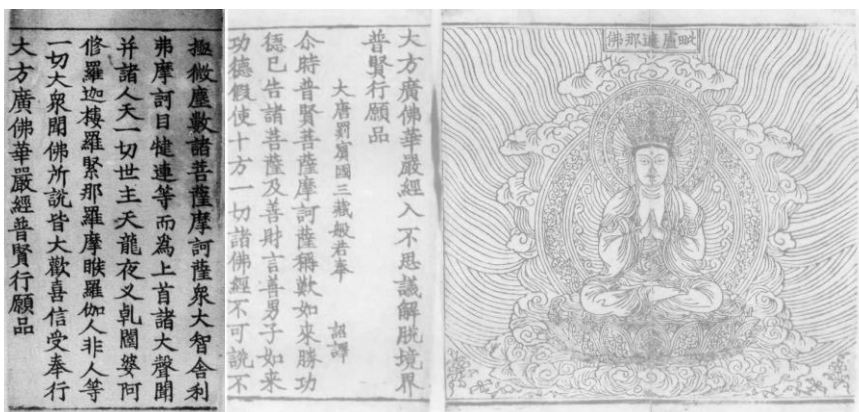 毗盧遮那佛
大方廣佛華嚴經入不思議解脫境界
普賢行願品
大唐罽賓國三藏般若奉　詔譯
尒時普賢菩薩摩訶薩稱歎如來勝功
德已告諸菩薩及善財言善男子如來
功德假使十方一切諸佛經不可說不
極微塵數諸菩薩摩訶薩眾大智舍利
弗摩訶目犍連等而為上首諸大聲聞
并諸人天一切世主天龍夜叉乹闥婆阿
修羅迦樓羅緊那羅摩睺羅伽人非人等
一切大眾聞佛所說皆大歡喜信受奉行
大方廣佛華嚴經普賢行願品